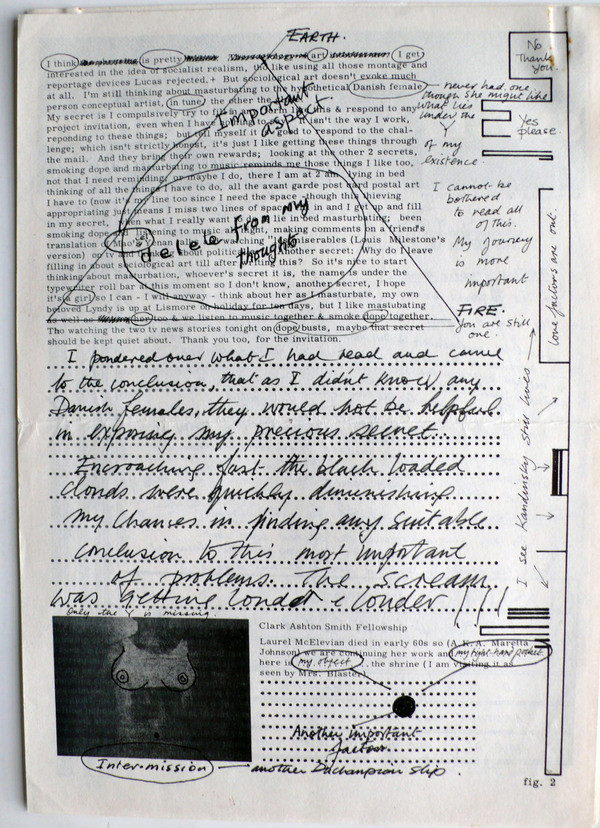 EARTH.
I think is pretty art I get
interested in the idea of socialist realism, the like using all those montage and
reportage devices Lucas rejected.+ But sociological art doesn't evoke much
at all. I'm still thinking about masturbating to the hypothetical Danish female
person conceptual artist, in tune the other the
My secret is I compulsively try to & respond to any
project invitation, even when I have isn't the way I work,
reponding to these things; but tell myself it's good to respond to the chal-
lenge; which isn't strictly honest, it's just like getting these things through
the mail. And they bring their own rewards; looking at the other 2 secrets,
smoking dope and masturbating to music reminds me those things I like too,
not that I need reminding, or maybe I do, there I am at 2 am lying in bed
thinking of all the things I have to do, all the avant garde post card postal art
I have to (now it's line too since I need the space through this thieving
appropriating just means I miss two lines of space in and I get up and fill
in my secret, when what I really want is lie in bed masturbating; been
smoking dope listening to music all night, making comments on a friend's
translation Mao watching Les miserables (Louis Milestone's
version) on tv about political Another secret: Why do I leave
filling in about sociological art till after writing this? So it's nice to start
thinking about masturbation, whoever's secret it is, the name is under the
typewriter roll bar at this moment so I don't know, another secret, I hope
it's a girl so I can - I will anyway - think about her as I masturbate, my own
beloved Lyndy is up at Lismore on holiday for ten days, but I like mastubating
as well as her too & we listen to music together & smoke dope together.
Tho watching the two tv news stories tonight on dope busts, maybe that secret
should be kept quiet about. Thank you too, for the invitation.
Important
aspect.
delete from my
thoughts
No
Thank
you.
Yes
please.
never had one
though she might like
what lies
under the
Y
of my
existence.
I cannot be
bothered
to read all
of this.
My journey
is more
important
FIRE.
you are still
one
love factors are out.
I see Kandinsky still lives
I pondered over what I had read and came
to the conclusion, that as I didnt know any
Danish females, they would not be helpful
in exposing my precious secret.
Encroaching fast the black loaded
clouds were quickly diminishing
my chances in finding any suitable
conclusion to this most important
of problems. The scream
was getting louder & louder !!!
Only the Y is missing.
Clark Ashton Smith Fellowship
Laurel McElevian died in early 60s so (A.K.A. Maretta
Johnson) we are continuing her work and my right hand pocket
here is my object, the shrine (I am visiting it as
seen by Mrs. Blaster)
Another important
factor.
Inter-mission another Duchampion slip.
fig. 2